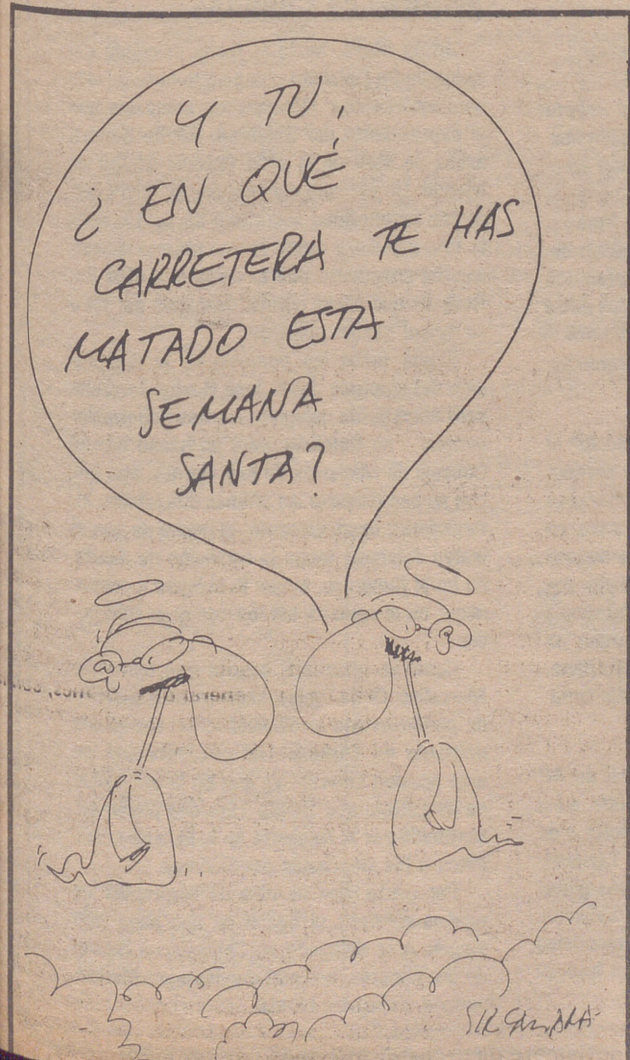 Y TU,
¿EN QUÉ
CARRETERA TE HAS
MATADO ESTA
SEMANA
SANTA?